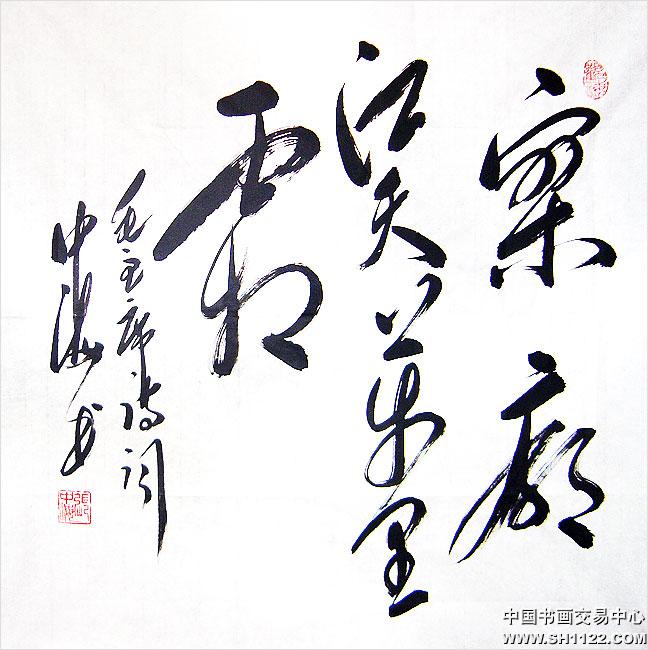 寥廓
江天萬里
霜
毛主席诗词
中海书
中国书画交易中心
WWW.SH1122.COM